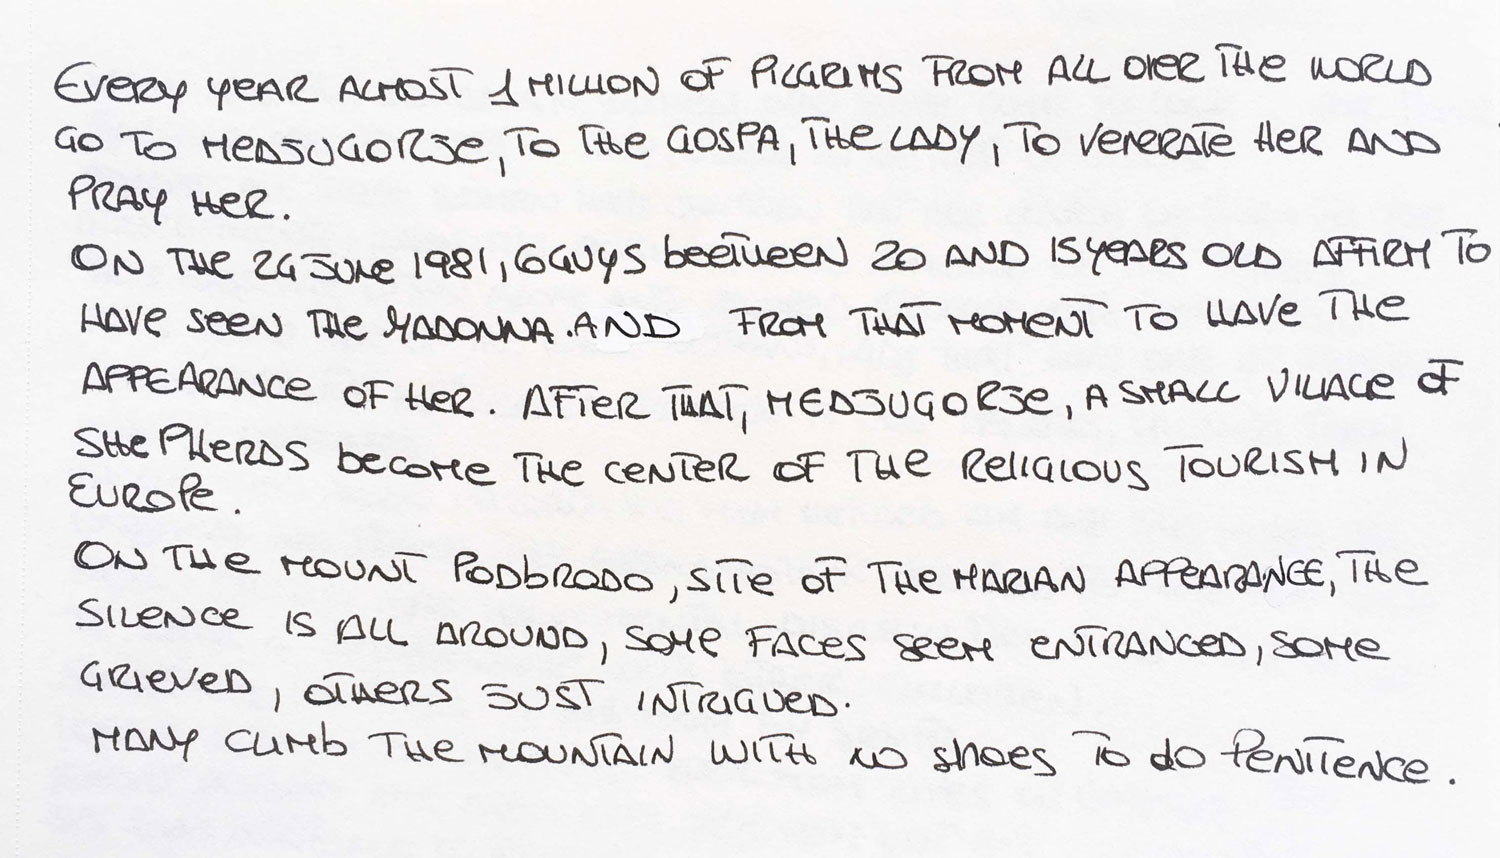 EVERY YEAR ALMOST 1 MILLION OF PILGRIMS FROM ALL OVER THE WORLD
GO TO MEDJUGORJE, TO THE GOSPA, THE LADY, TO VENERATE HER AND
PRAY HER.
ON THE 24 JUNE 1981, 6 GUYS BEETWEEN 20 AND 15 YEARS OLD AFFIRM TO
HAVE SEEN THE MADONNA. AND FROM THAT MOMENT TO HAVE THE
APPEARANCE OF HER. AFTER THAT, MEDJUGORJE, A SMALL VILLAGE OF
SHEPHERDS BECOME THE CENTER OF THE RELIGIOUS TOURISM IN
EUROPE.
ON THE MOUNT PODBRODO, SITE OF THE MARIAN APPEARANCE, THE
SILENCE IS ALL AROUND, SOME FACES SEEM ENTRANCED, SOME
GRIEVED, OTHERS JUST INTRIGUED.
MANY CLIMB THE MOUNTAIN WITH NO SHOES TO DO PENITENCE.